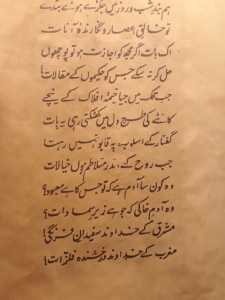 ہم بندِ شب و روز میں جکڑے ہوئے بندے
تو خالقِ اعصار و نگارندۂ آنات
اک بات اگر مجھ کو اجازت ہو تو پوچھوں
حل کر نہ سکے جس کو حکیموں کے مقالات!
جب تک میں جیا خیمۂ افلاک کے نیچے
کانٹے کی طرح دل میں کھٹکتی رہی یہ بات
گفتار کے اسلوب پہ قابو نہیں رہتا
جب روح کے اندر متلاطم ہوں خیالات
وہ کون سا آدم ہے کہ تو جس کا ہے معبود؟
وہ آدمِ خاکی کہ جو ہے زیرِ سماوات؟
مشرق کے خداوند سفیدانِ فرنگی!
مغرب کے خداوند درخشندہ فلزات!